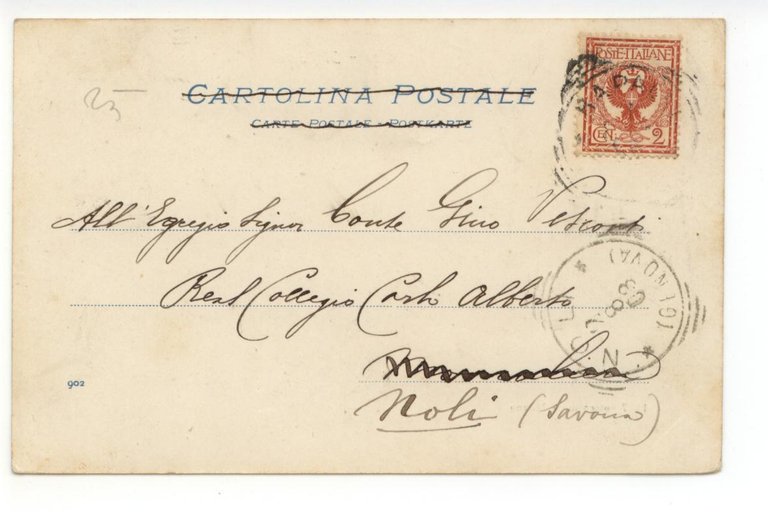 25
CARTOLINA POSTALE
CARTE POSTALE - POSTKARTE
POSTE·ITALIANE
CENT. 2
All' Egregio Signor Conte Gino Visconti
Real Collegio Carlo Alberto
Noli (Savona)
NOLI
(GENOVA)
902